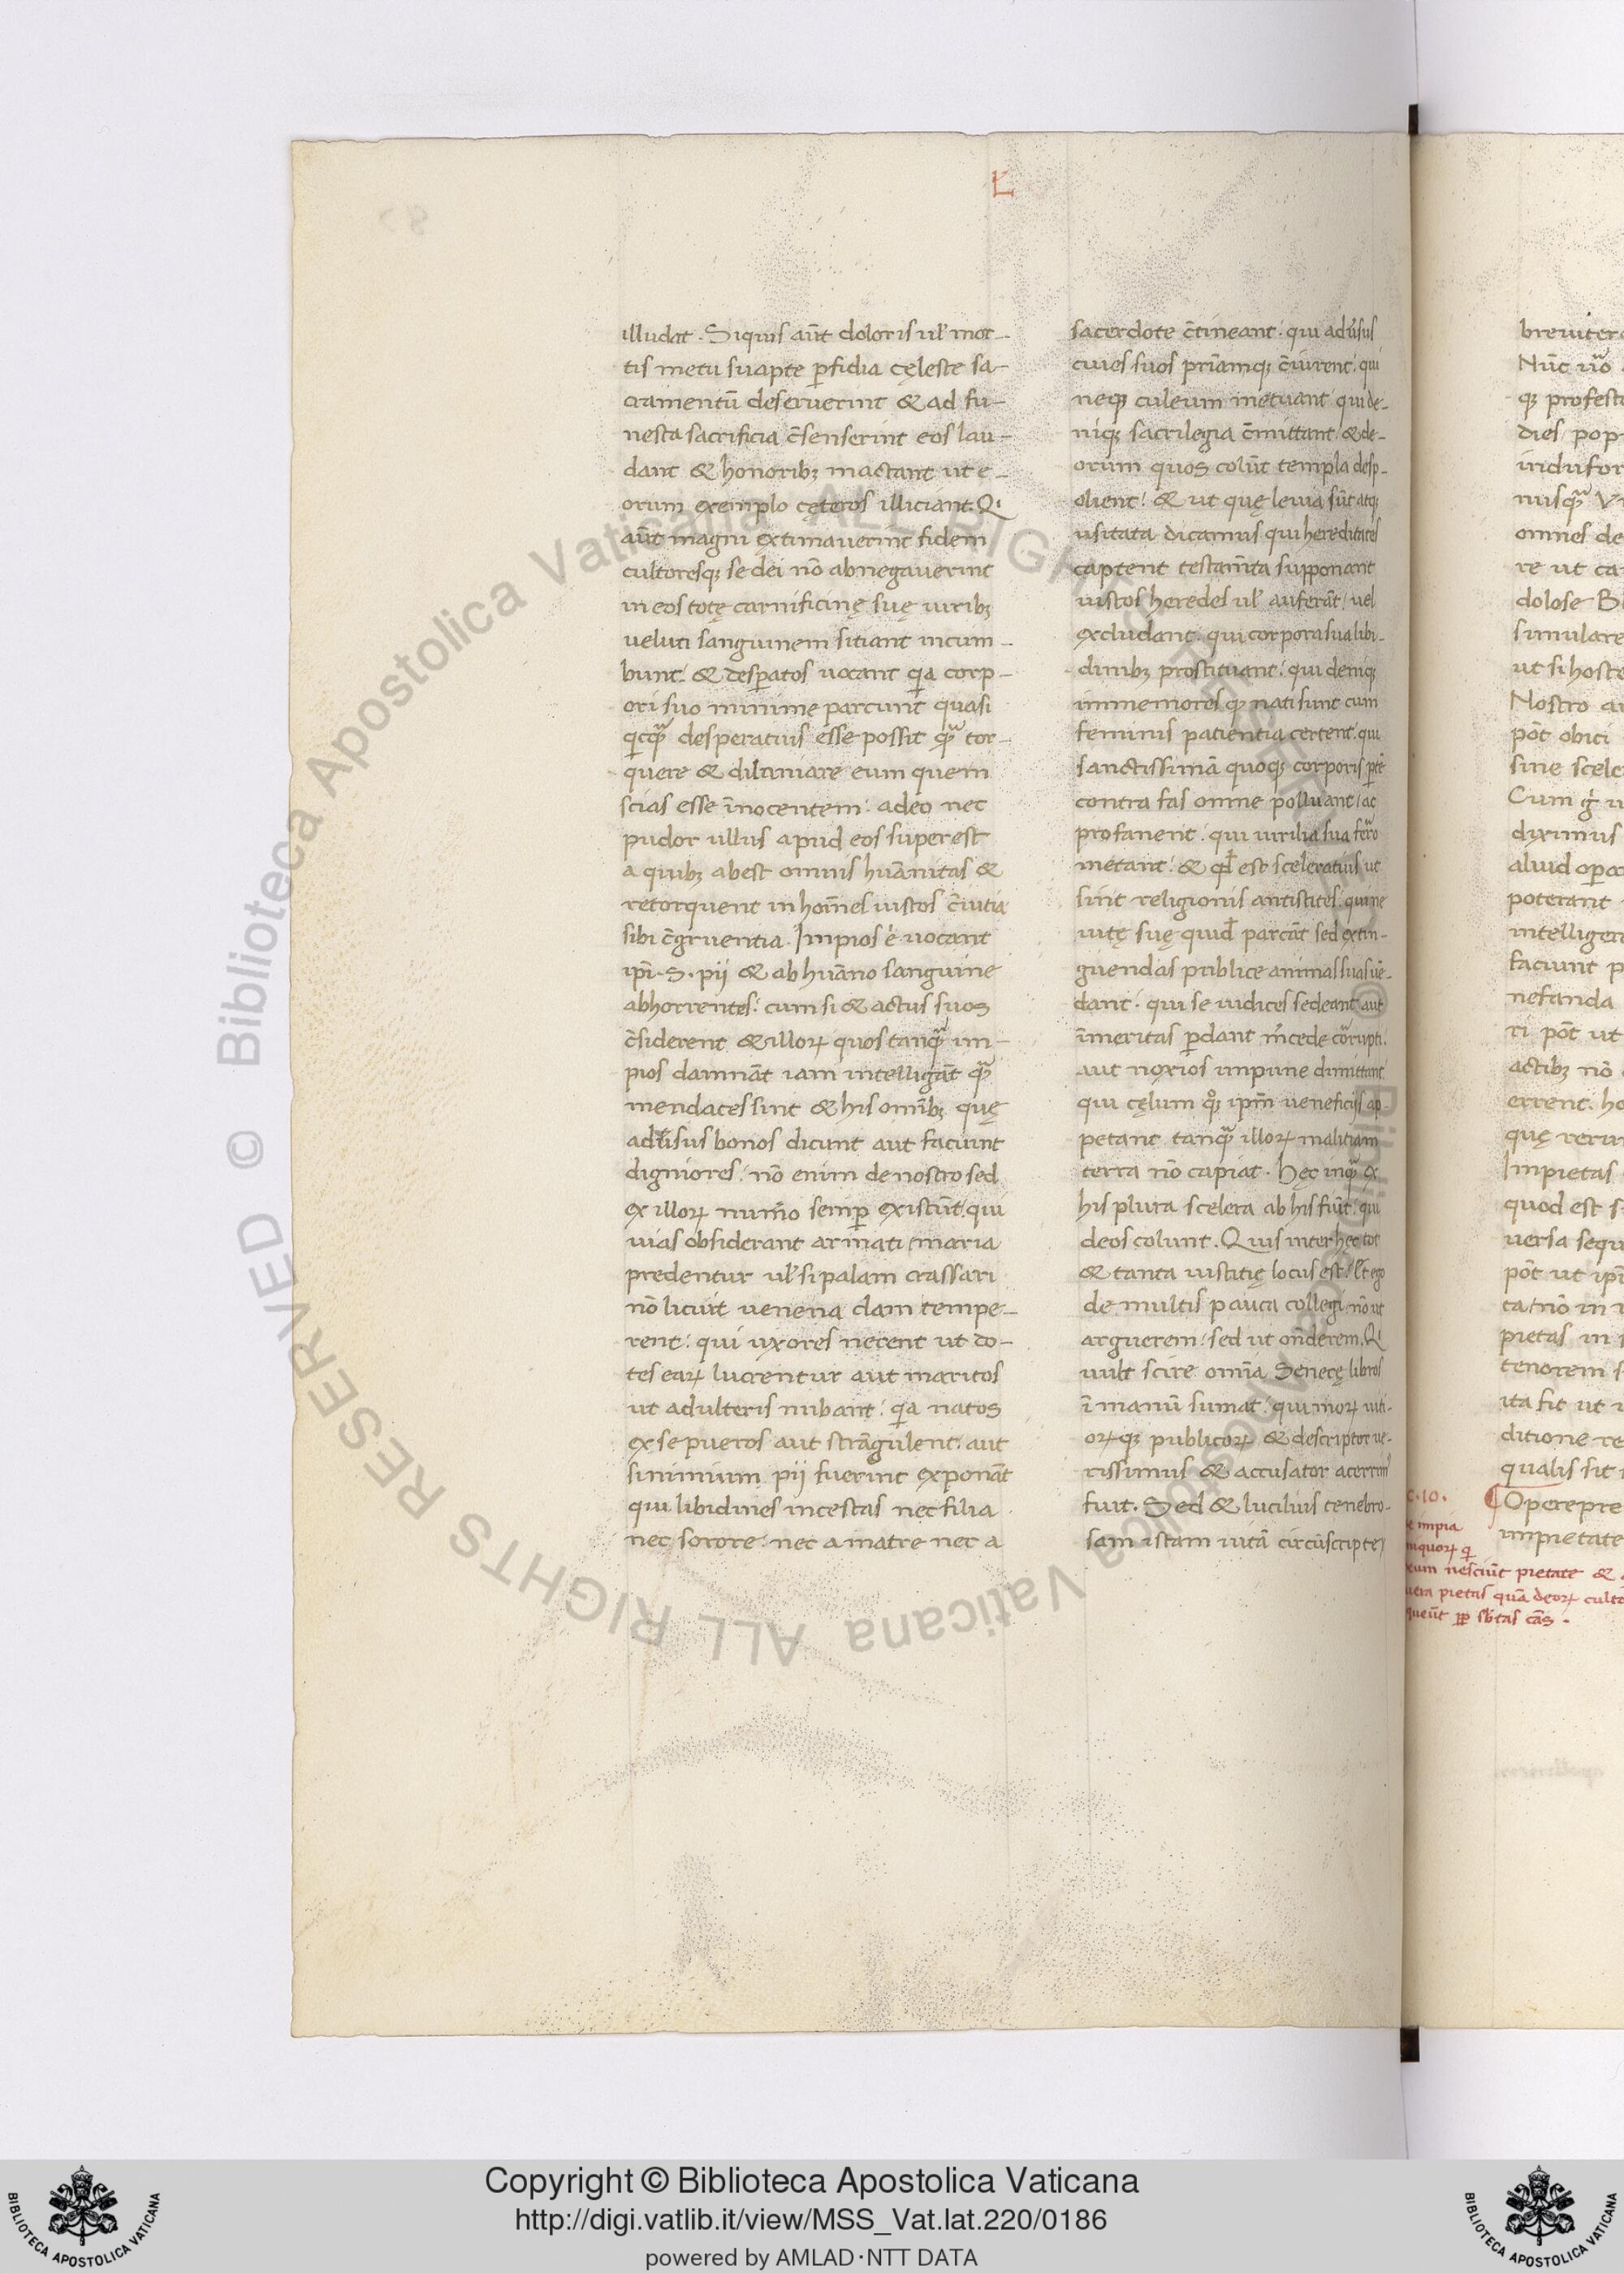 L
illudat. Siquis aūt doloris ul' mor-
tis metu suapte ꝑfidia cęleste sa-
cramentū deseruerint & ad fu-
nesta sacrificia c̄senserint eos lau-
dant & honoribꝫ mactant ut e-
orum exemplo cęteros illiciant. Qͥ
aūt magni extimauerint fidem
cultoresqꝫ se dei nō abnegauerint
in eos totę carnificinę suę uiribꝫ
veluti sanguinem sitiant incum-
bunt: & desꝑatos uocant qa corp-
ori suo minime parcunt quasi
qcqᷓ desperatius esse possit qᷓ tor-
quere & dilaniare eum quem
scias esse īnocentem: adeo nec
pudor ullus apud eos superest
a quibꝫ abest omnis huānitas &
retorquent in hoīnes iustos c̄uitia
sibi c̄gruentia. Impios .n. uocant
ipī. s. pij & ab huāno sanguine
abhorrentes: cum si & actus suos
c̄siderent & illoꝝ quos tanqᷓ im-
pios damnāt iam intelligāt qᷓ
mendaces sint & his omībꝫ quę
adūsus bonos dicunt aut faciunt
digniores: nō enim de nostro sed
ex illoꝝ num̄o semꝑ existūt: qui
uias obsiderant armati / maria
predentur ul' si palam crassari
nō licuit uenena clam tempe-
rent: qui uxores necent ut do-
tes eaꝝ lucrentur aut maritos
ut adulteris nubant: qa natos
ex se pueros aut strāgulent: aut
si nimium pij fuerint exponāt
qui libidines incestas nec filia
nec sorore: nec a matre nec a
sacerdote c̄tineant: qui adūsus
ciues suos pr̄iamqꝫ c̄iurent: qui
neqꝫ culeum metuant qui de-
niqꝫ sacrilegia c̄mittant: & de-
orum quos colūt templa desp-
olient: & ut quę leuia sūt atqꝫ
usitata dicamus qui hereditates
captent testam̄ta supponant
iustos heredes ul' auferāt / uel
excludant: qui corpora sua libi-
dinibꝫ prostituant: qui deniqꝫ
immemores qꝫ nati sunt cum
feminis patientia certent: qui
sanctissimā quoqꝫ corporis ꝑtē
contra fas omne polluant / ac
profanent: qui uirilia sua ferro
metant: & qd' est sceleratius ut
sint religionis antistites: qui ne
uitę suę quid' parcāt sed extin-
guendas publice animas suas uē-
dant: qui se iudices sedeant aut
īmeritas ꝑdant m̄cede corrupti:
aut noxios impune dimittant
qui cęlum qꝫ ipm̄ ueneficijs ap
petant tanqᷓ illoꝝ malitiam
terra nō capiat. Hęc inqᷓ &
his plura scelera ab his fiūt: qui
deos colunt. Quis inter hęc tot
& tanta iustitię locus est: Et ego
de multis pauca collegi: nō ut
arguerem: sed ut oñderem. Qͥ
uult scire omīa Senecę libros
ī manū sumat: qui moꝝ uiti-
oꝝ qꝫ publicoꝝ & descriptor ue-
rissimus & accusator acerrimꝰ
fuit. Sed & lucilius tenebro-
sam istam uitā circūscripte /
breuiter
Nūc ūo
qꝫ profest
dies pop
indufor
nusqᷓ
omnes de
re ut ca
dolose
simulare
ut si hoste
Nostro
pōt obici
sine scele
Cum
diximus
aliud oꝑa
poterant
intelliger
faciunt
nefanda
ri pōt ut
actibꝫ nō
errent. ho
quę reru
Impietas
quod est
uersa sequ
pōt ut ipī
ca / nō in
pietas in
tenorem
ita fit ut
ditione re
qualis sit
C. 10.
Opere pre
impietate
impia
iniquoꝝ q
cum nesciūt pietate &
uera pietas quā deoꝝ culto
Copyright © Biblioteca Apostolica Vaticana
http://digi.vatlib.it/view/MSS_Vat.lat.220/0186
powered by AMLAD·NTT DATA
BIBLIOTECA APOSTOLICA VATICANA
BIBLIOTECA APOSTOLICA VATICANA
© Biblioteca Apostolica Vaticana ALL RIGHTS RESERVED
© Biblioteca Apostolica Vaticana ALL RIGHTS RESERVED